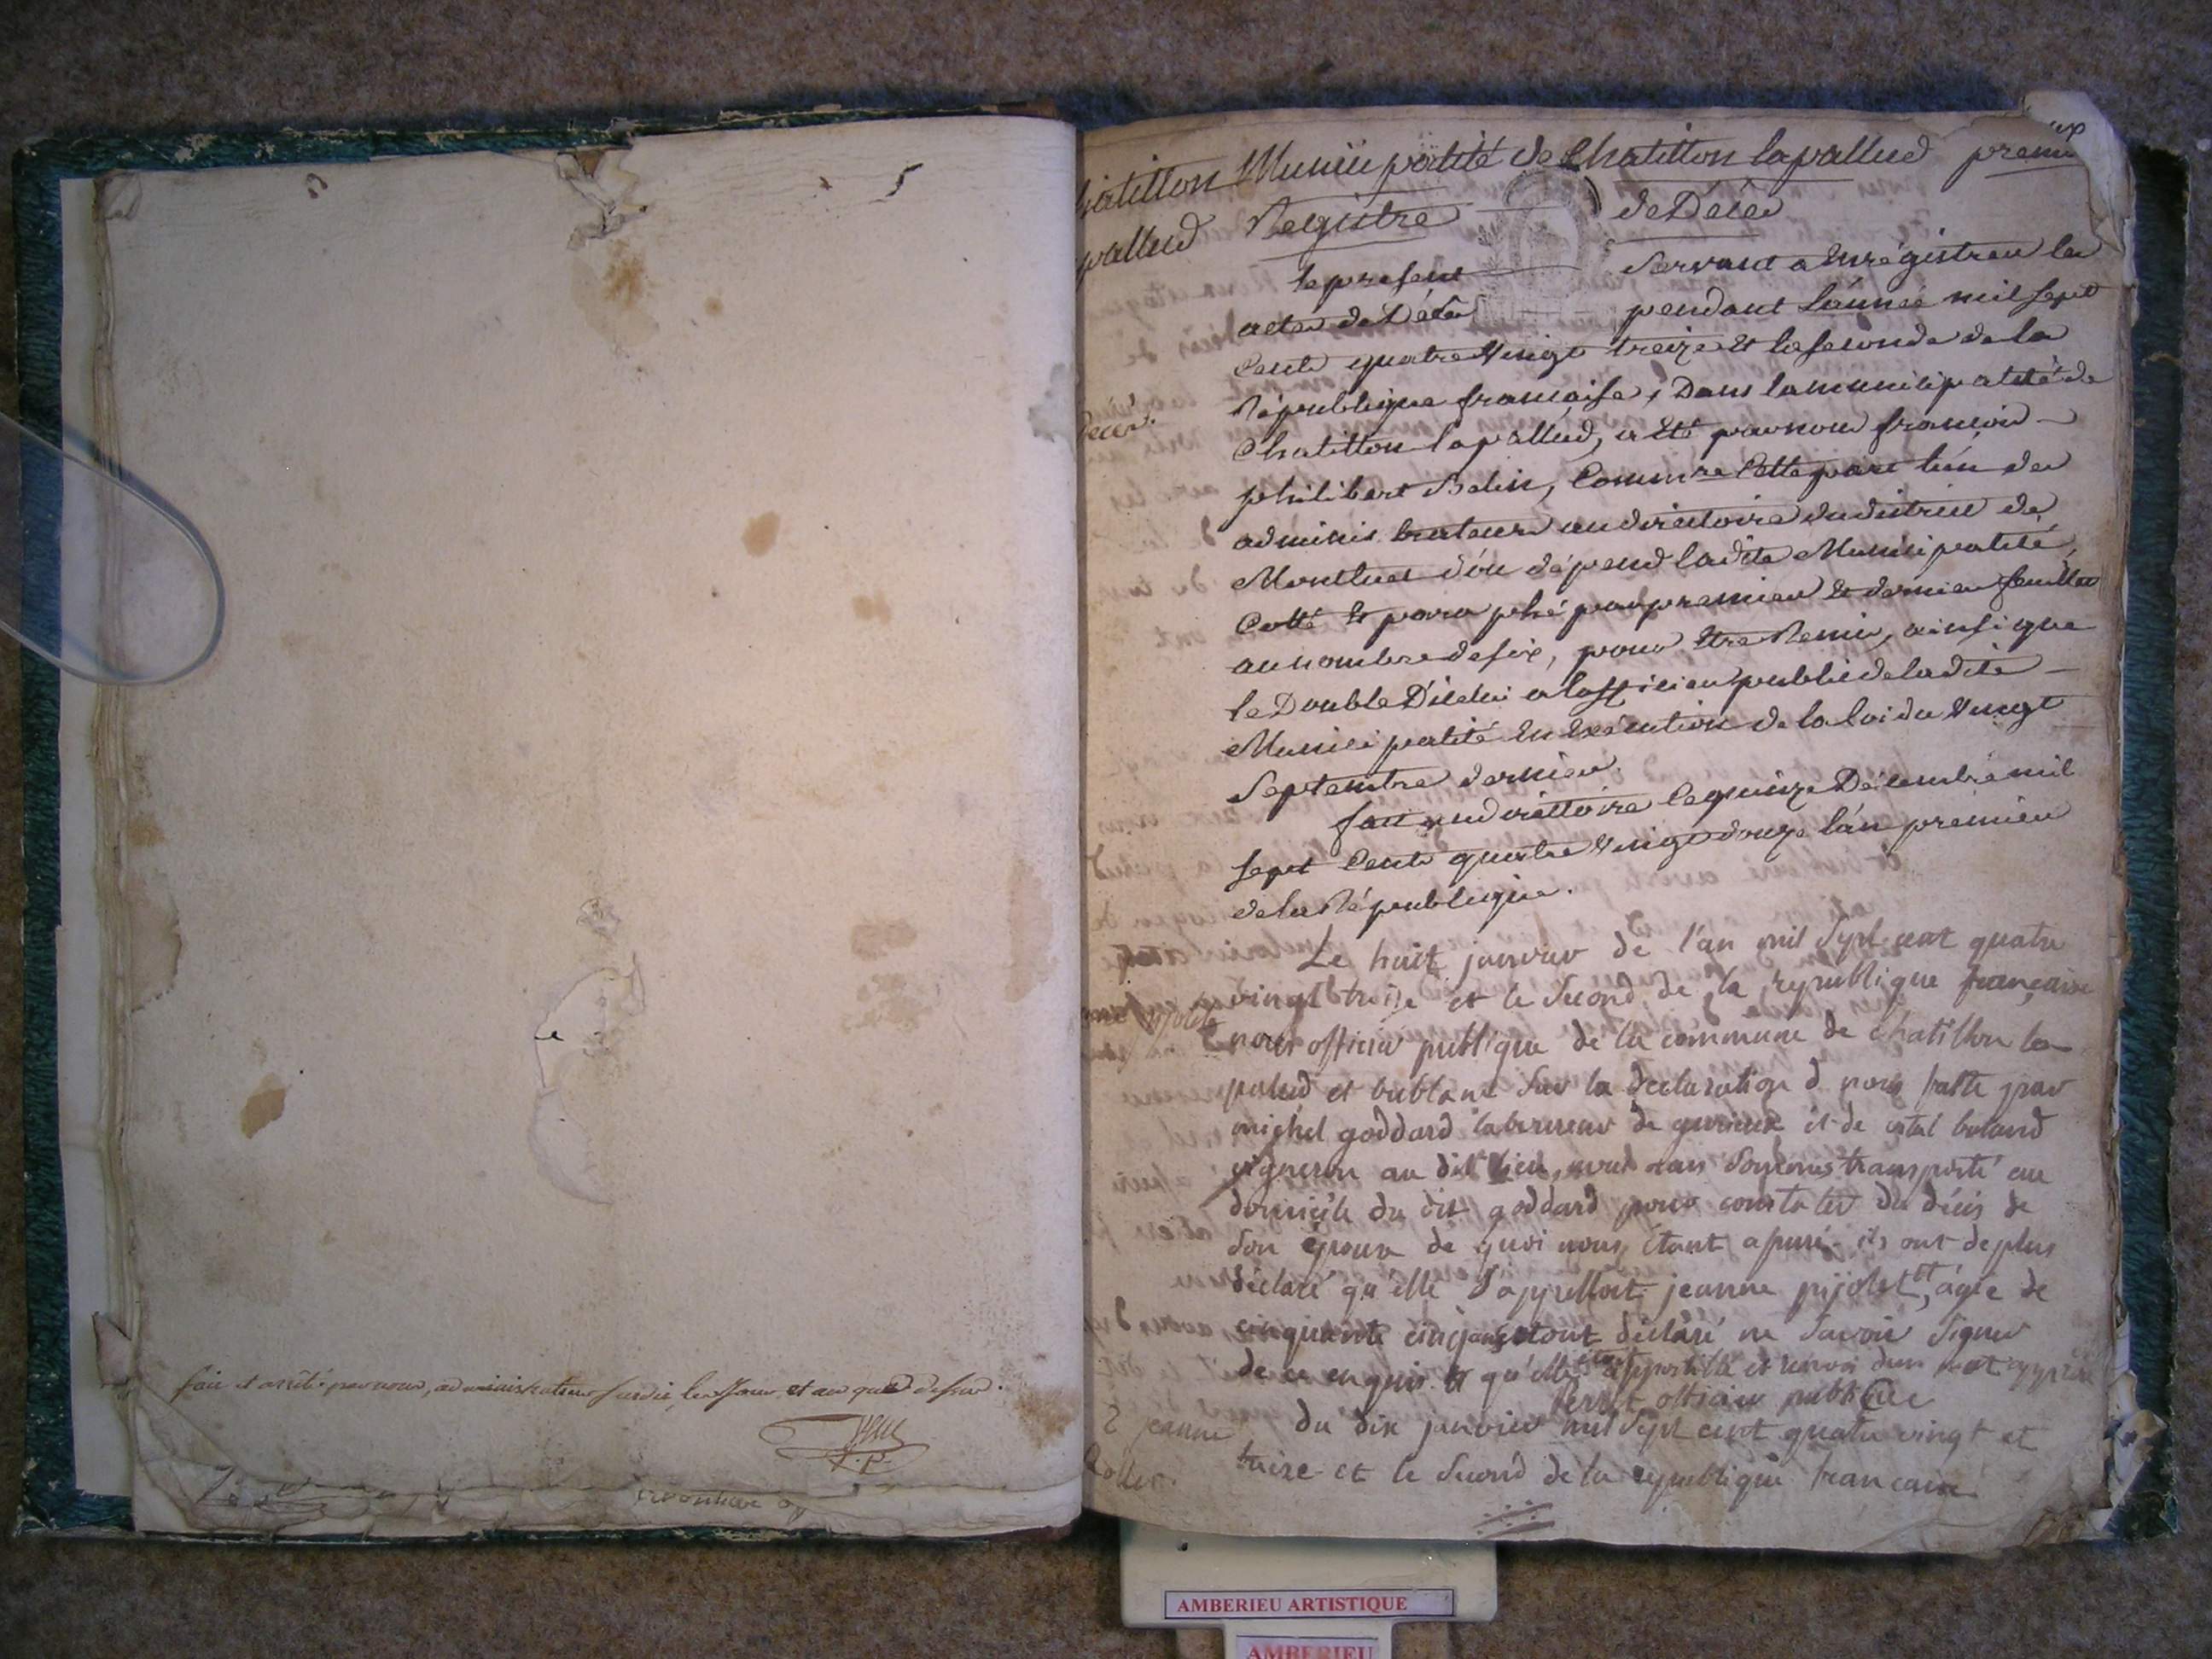 fait et arrêté par nous, administrateur susdit les jour et an que dessus.
Municipalité de Chatillon lapallud premie
hatillon
pallud
Registre de Décès
le present servant a Enrégistrer les
actes de Décès pendant l'année mil sept
Cents quatre Vingt treize Et la seconde de la
République francaise, Dans la municipalité de
Chatillon lapallud, a Eté par nous francois
philibert Belin, Commre Cette part l'un des
adminis trateurs au directoire du district de
Montluel d'ou dépend ladite Municipalité,
Cotté Et para phé par premier Et dernier feuillet
au nombre de six, pour Etre Remis, ainsi que
le Double D'icelui a l'officier public de ladite
Munici palité En Exécution de la loi du Vingt
Septembre dernier.
fait au directoire le quinze Décembre mil
sept Cents quatre Vingt douze l'an premier
de la République.
Le huit janvier de l'an mil sept cent quatre
vingt treize et le second de la republique françaixe
nous officier publique de la commune de chatillon la
palud et bublane sur la declaration d nous faitte par
michel goddard laboureur de et de
vigneron au dit lieu, nous somomes transporté au
domicile du dit goddard pour constater du décès de
son epouse de quoi nous étant apuré ils ont de plus
déclaré qu'elle s'appelloit jeanne pijolet, agée de
cinquante cinq ans et ont déclaré ne savoir signer
de ce enquis et qu'elle et renvoi d'un mot
Perret officier publique
2 jeanne
du dix janvier mil sept cent quatre vingt et
treize et le second de la republique francaise
AMBERIEU ARTISTIQUE
AMBERIEU